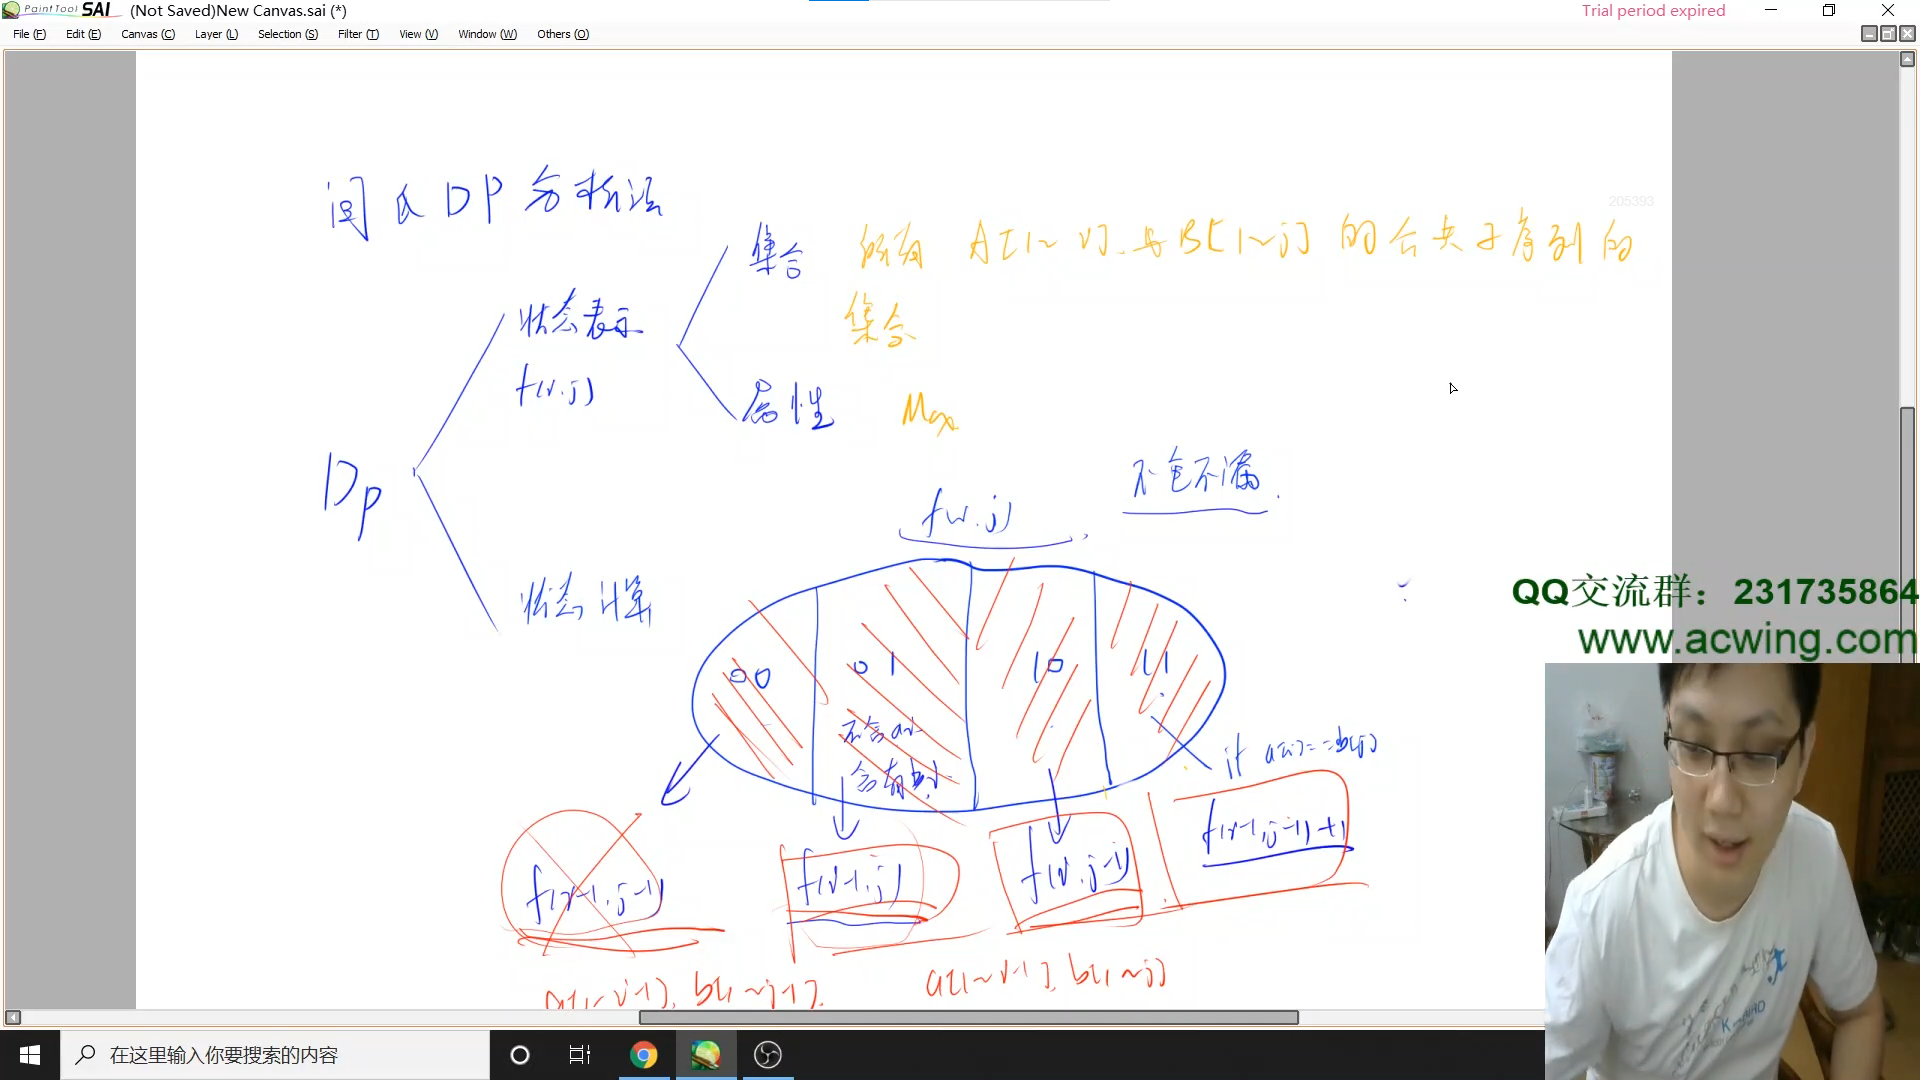 PaintTool SAI (Not Saved)New Canvas.sai (*) Trial period expired
File (F) Edit (E) Canvas (C) Layer (L) Selection (S) Filter (T) View (V) Window (W) Others (O)
闫氏DP分析法
205393
集合 所有A[1~i]与B[1~j]的公共子序列的
集合
状态表示
f(i,j)
属性 Max
DP
不包不漏
f(i,j)
状态计算
00 01 10 11
不含ai
含有bj
if a[i]==b[j]
f(i-1,j-1) f(i-1,j) f(i,j-1) f(i-1,j-1)+1
a[1~i-1], b[1~j-1]. a[1~i-1], b[1~j]
QQ交流群：231735864
www.acwing.com
在这里输入你要搜索的内容